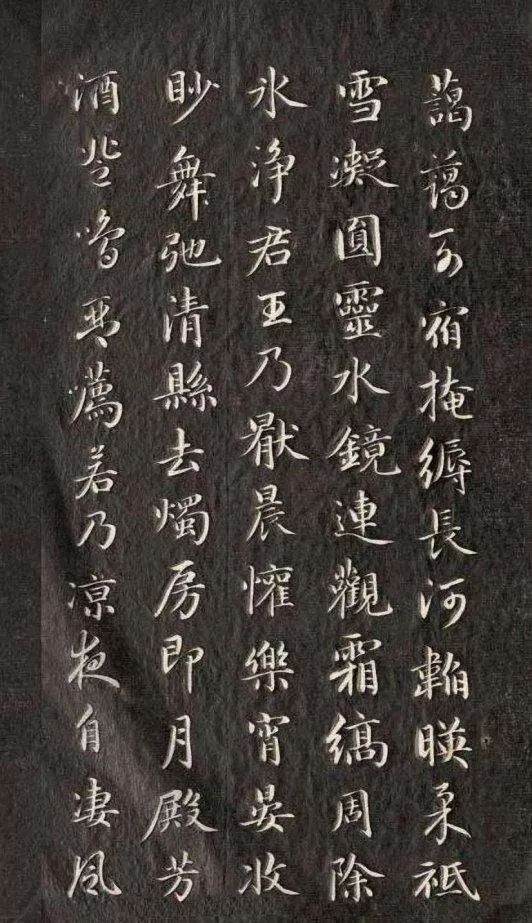 藹藹列宿掩縟長河韜暎柔祇
雪凝圓靈水鏡連觀霜縞周除
氷淨君王乃猒晨懽樂宵晏收
眇舞弛清縣去燭房即月殿芳
酒登鳴琴薦若乃凉夜自凄風